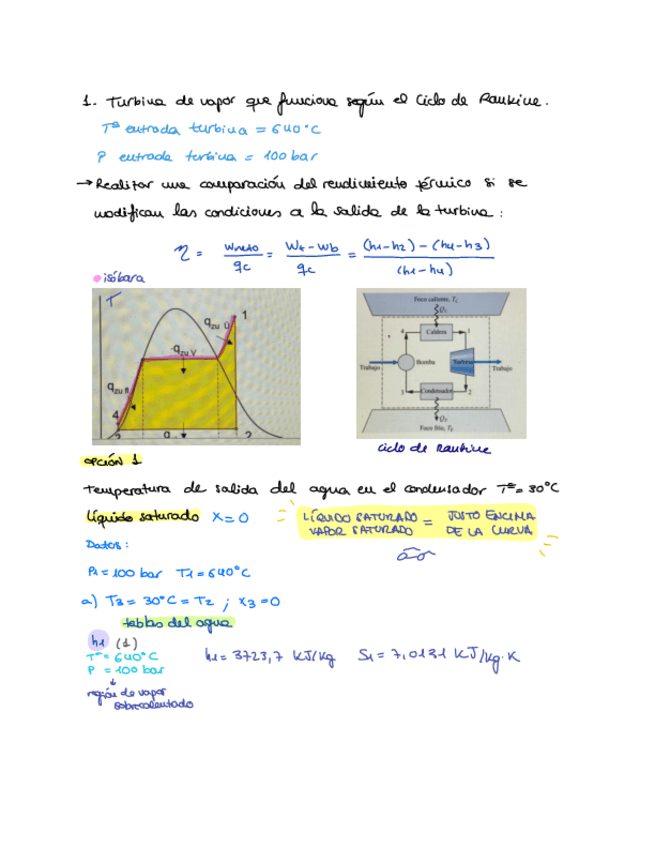 1. Turbina de vapor que funciona según el ciclo de Rankine.
Tª entrada turbina = 640°C
P entrada turbina = 100 bar
→ Realizar una comparación del rendimiento térmico si se
modifican las condiciones a la salida de la turbina:
η = Wneto/qc = Wt - Wb/qc = (h1-h2) - (h4-h3)/(h1-h4)
isóbara
T
1
qzu Ü
qzu V
qzu B
4
2
Foco caliente, Tc
Qc
4
Caldera
1
Trabajo
Bomba
Turbina
Trabajo
3
Condensador
2
Foco frío, TF
ciclo de Rankine
opción 1
Temperatura de salida del agua en el condensador Tª = 30°C
líquido saturado x = 0
LÍQUIDO SATURADO = JUSTO ENCIMA
VAPOR SATURADO DE LA CURVA
Datos:
P1 = 100 bar T1 = 640°C
a) T3 = 30°C = T2 ; x3 = 0
tablas del agua
h1 (1)
Tª = 640°C
h1 = 3723,7 KJ/kg S1 = 7,0131 KJ/kg·K
P = 100 bar
región de vapor
sobrecalentado